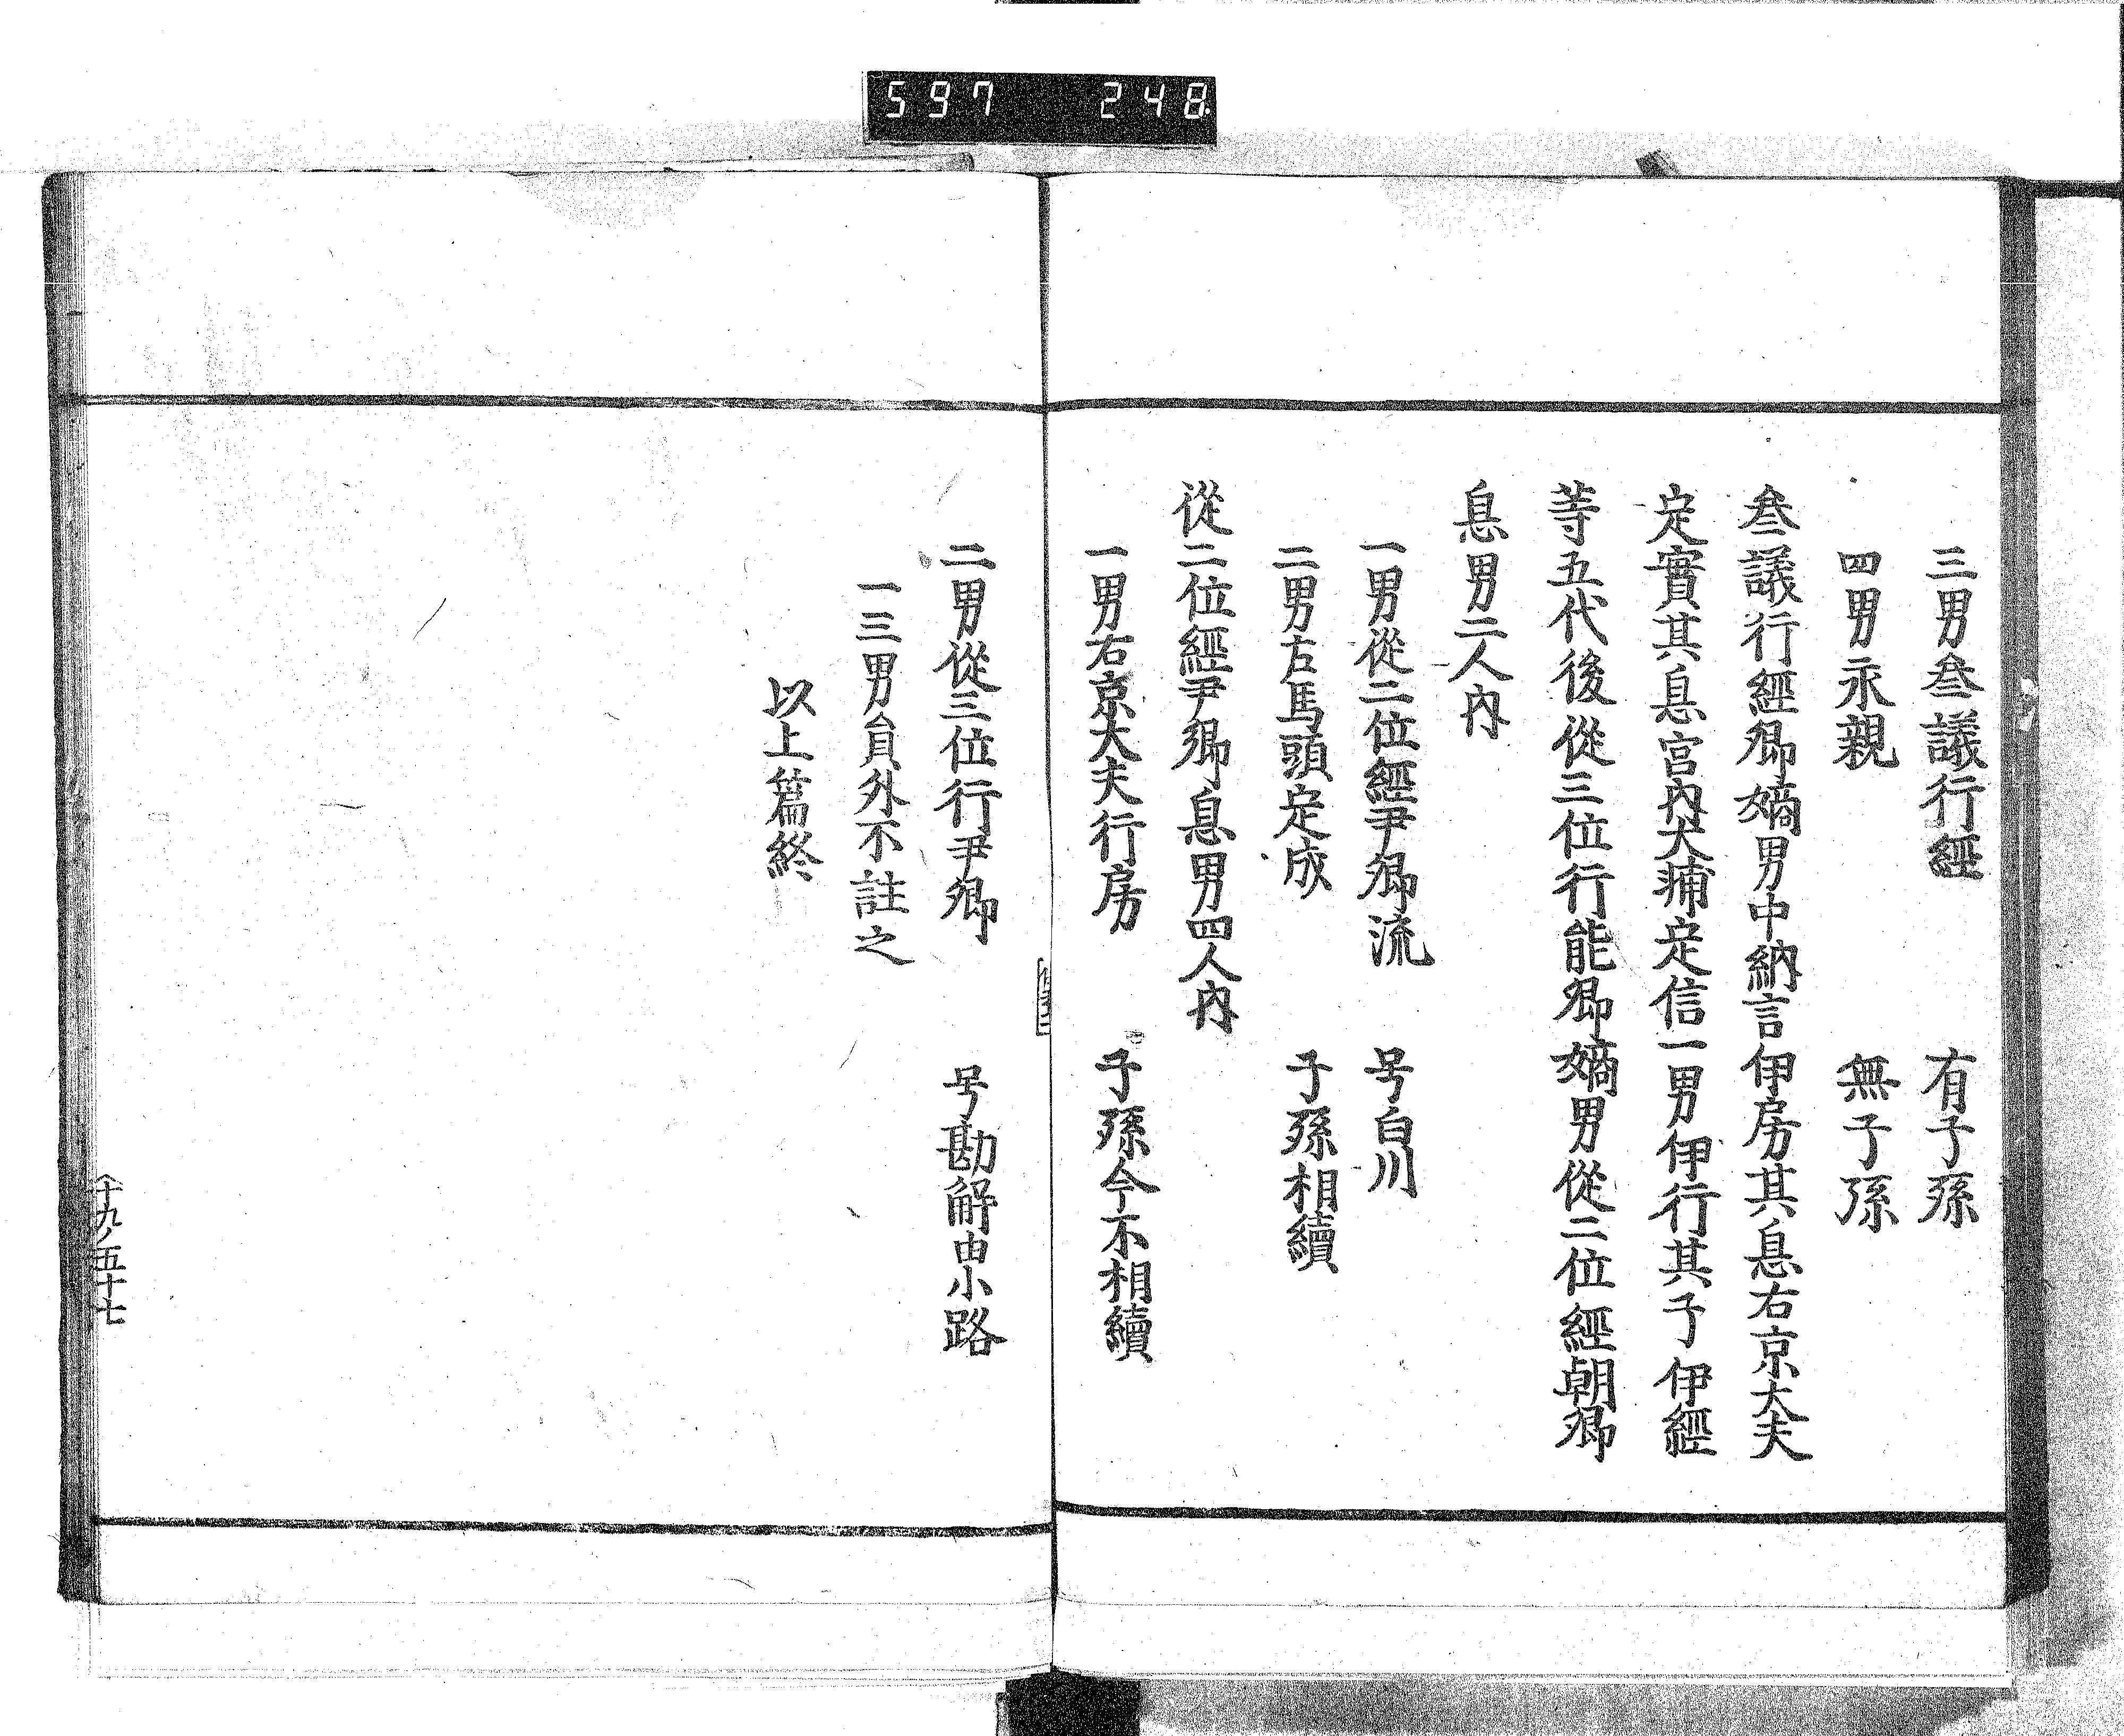 597 248
三男叅議行經 有子孫
四男永親 無子孫
叅議行經卿嫡男中納言伊房其息右京大夫
定實其息宮內大輔定信一男伊行其子伊經
等五代後從三位行能卿嫡男從二位經朝卿
息男二人內
一男從二位經尹卿流 号白川
二男右馬頭定成 子孫相續
從二位經尹卿息男四人內
一男右京大夫行房 子孫今不相續
二男從三位行尹卿 号勘解由小路
一三男員外不註之
以上篇終
十九ノ五十七